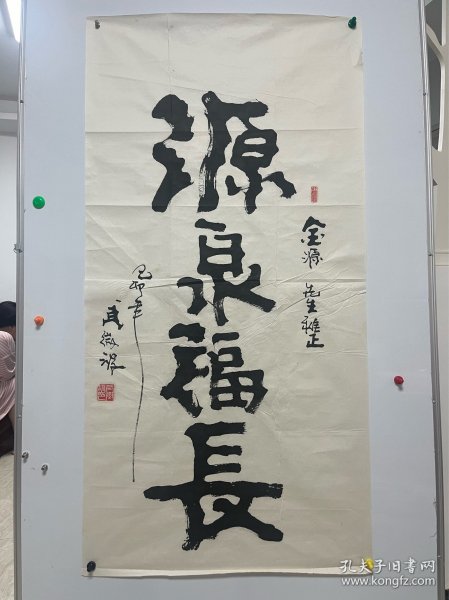 源泉福長
金源先生雅正
己卯年
孔夫子旧书网
www.kongfz.com